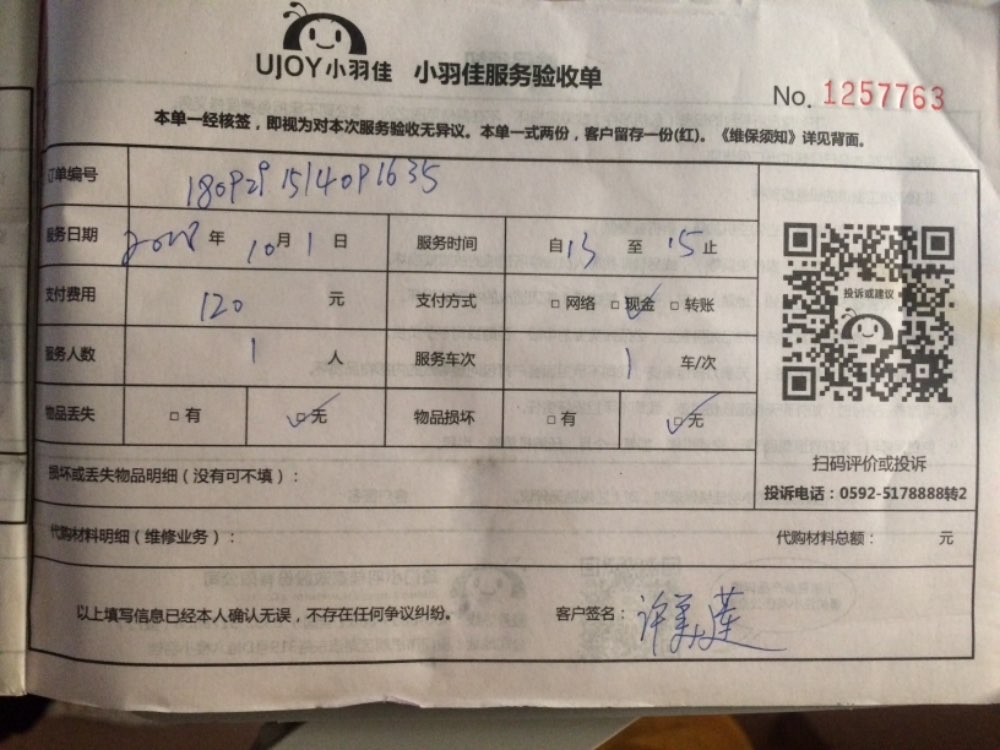 UJOY小羽佳 小羽佳服务验收单
No. 1257763
本单一经核签，即视为对本次服务验收无异议。本单一式两份，客户留存一份(红)。《维保须知》详见背面。
订单编号 1809291514091635
服务日期 2018年10月1日 服务时间 自13至15止
支付费用 120元 支付方式 □网络 ☑现金 □转账
投诉或建议
服务人数 1人 服务车次 1车/次
物品丢失 □有 ☑无 物品损坏 □有 ☑无
扫码评价或投诉
损坏或丢失物品明细（没有可不填）：
投诉电话：0592-5178888转2
代购材料明细（维修业务）： 代购材料总额： 元
以上填写信息已经本人确认无误，不存在任何争议纠纷。 客户签名：许美莲